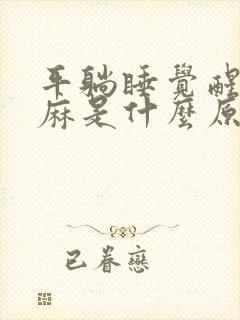 平躺睡覺醒
麻是什麼原
已眷戀